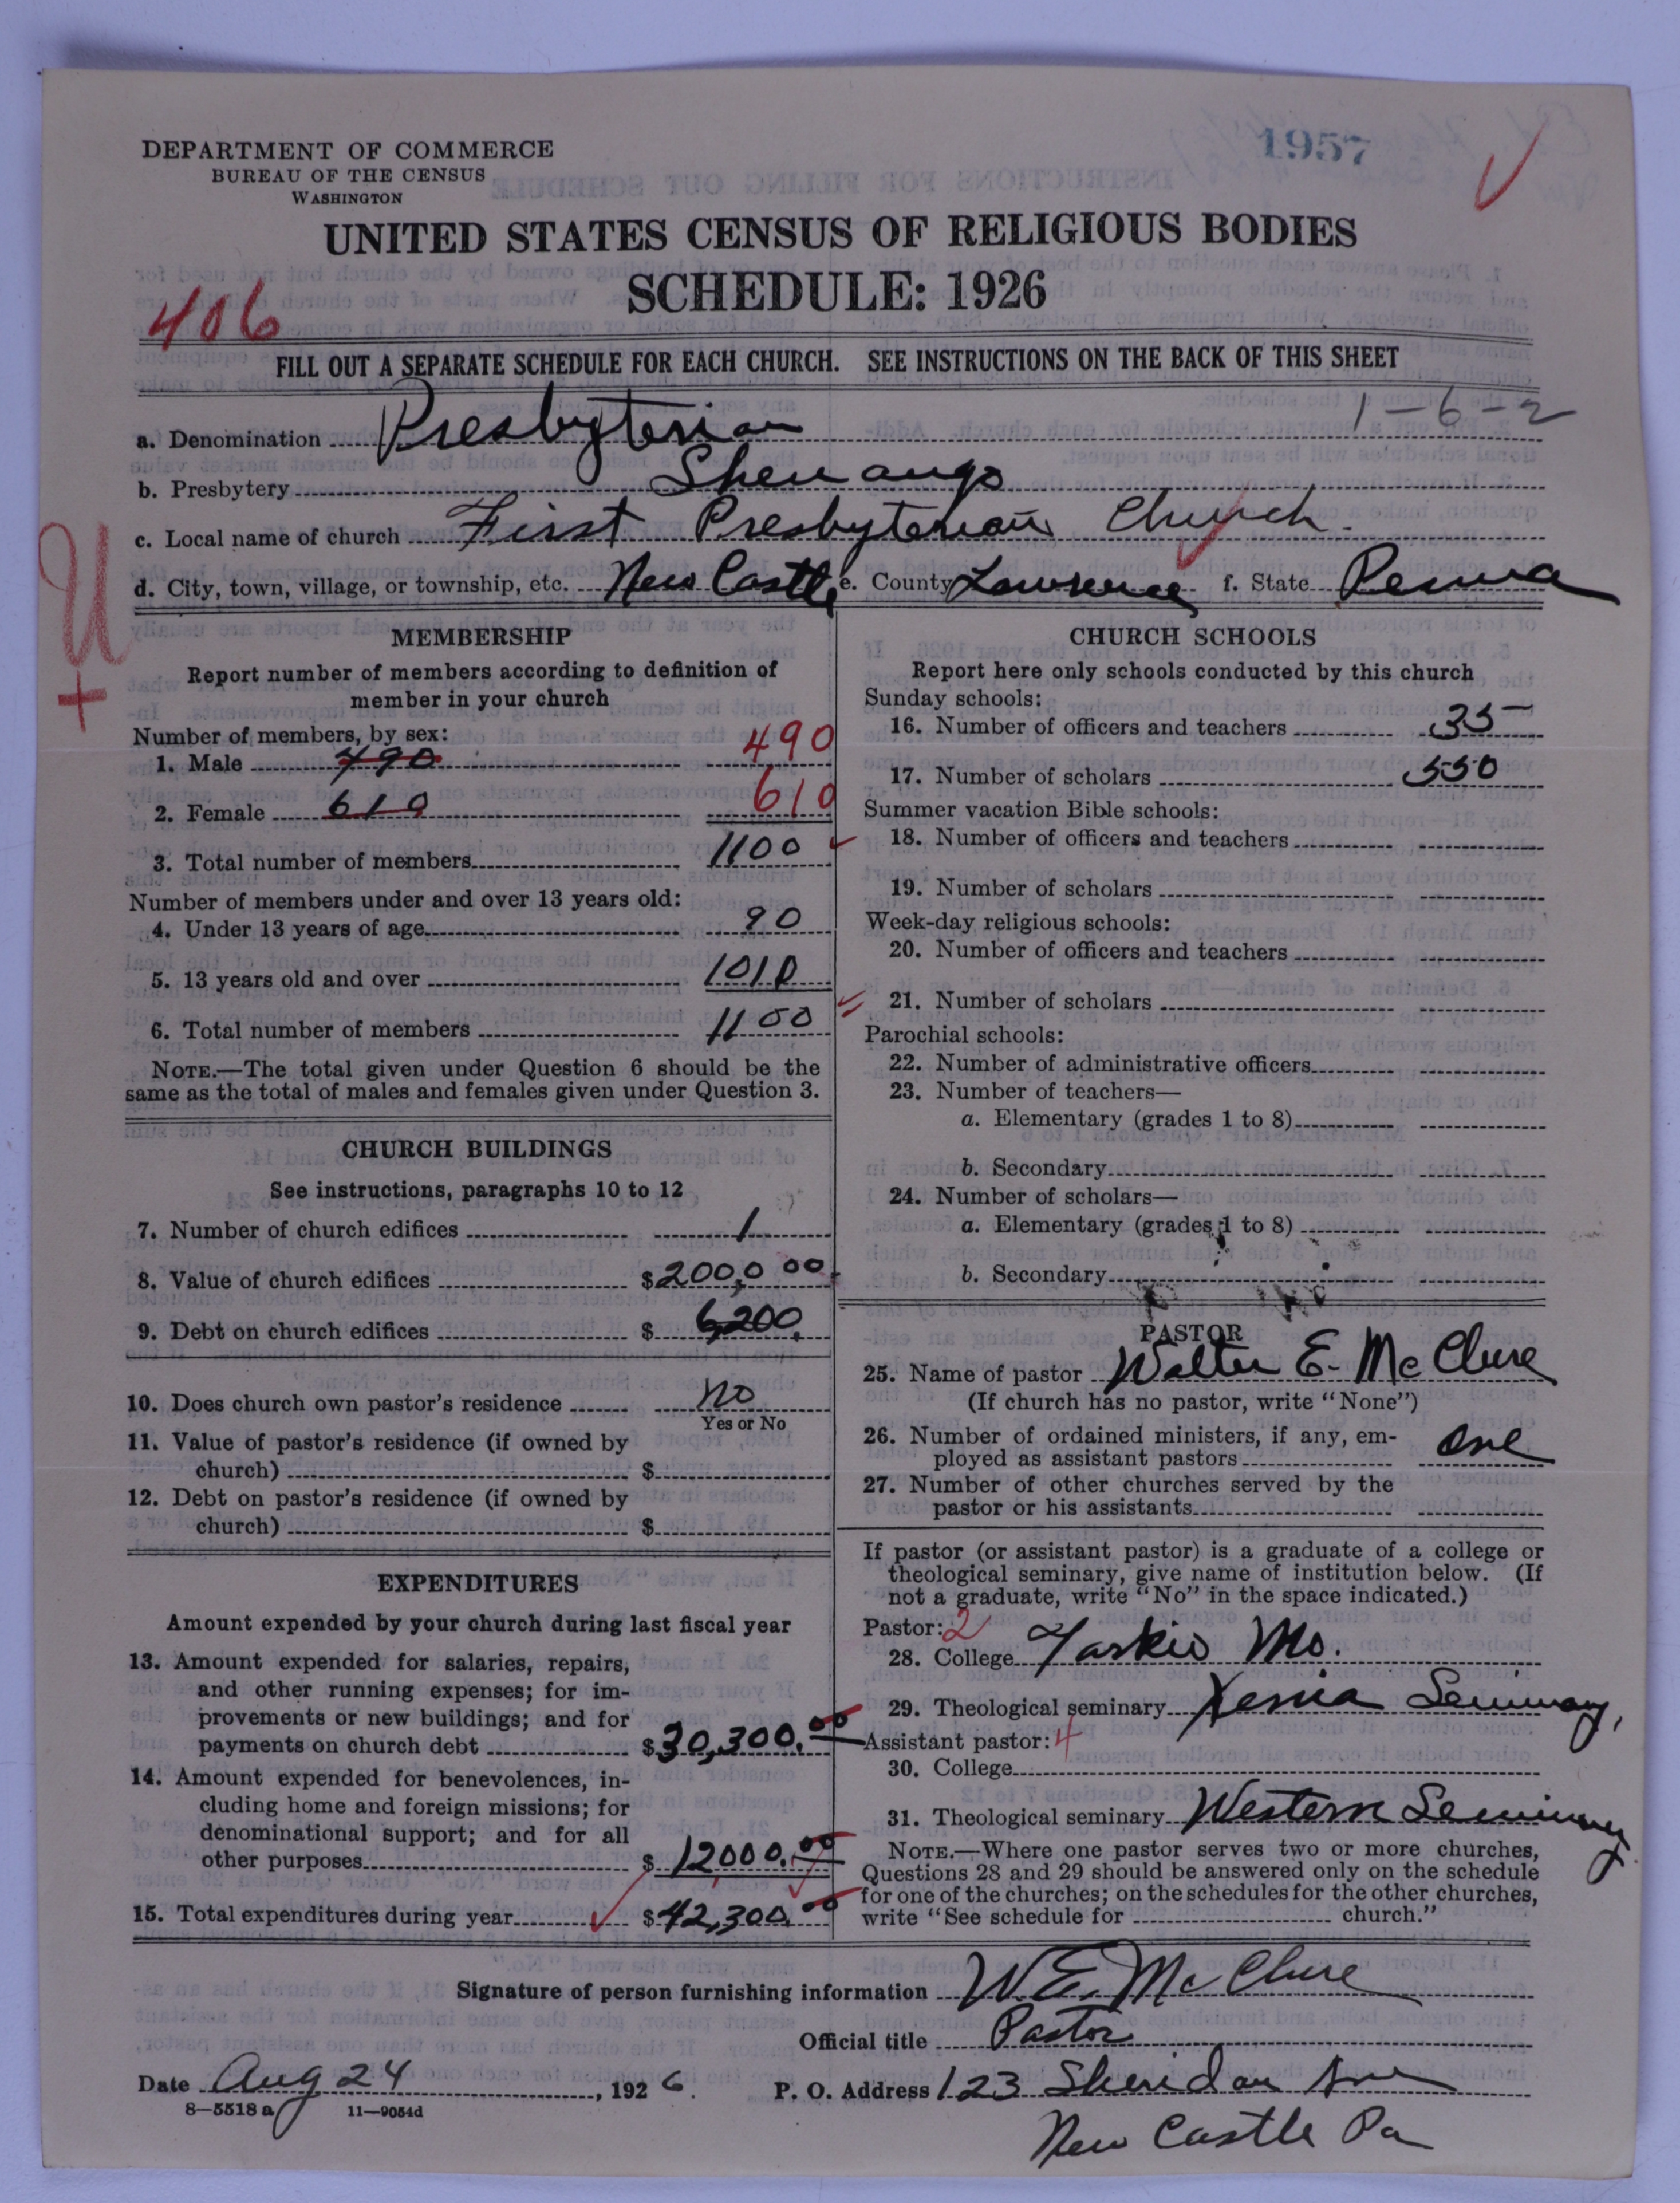 1957
DEPARTMENT OF COMMERCE
BUREAU OF THE CENSUS
WASHINGTON
UNITED STATES CENSUS OF RELIGIOUS BODIES
SCHEDULE: 1926
406
FILL OUT A SEPARATE SCHEDULE FOR EACH CHURCH. SEE INSTRUCTIONS ON THE BACK OF THIS SHEET
1-6-2
a. Denomination Presbyterian
b. Presbytery Shenango
c. Local name of church First Presbyterian Church.
d. City, town, village, or township, etc. New Castle e. County Lawrence f. State Penna
U
+
MEMBERSHIP
Report number of members according to definition of
member in your church
Number of members, by sex:
1. Male 490 490
2. Female 610 610
3. Total number of members 1100
Number of members under and over 13 years old:
4. Under 13 years of age 90
5. 13 years old and over 1010
6. Total number of members 1100
NOTE.—The total given under Question 6 should be the
same as the total of males and females given under Question 3.
CHURCH BUILDINGS
See instructions, paragraphs 10 to 12
7. Number of church edifices 1
8. Value of church edifices $200,000
9. Debt on church edifices $ 6,200.
10. Does church own pastor's residence No
Yes or No
11. Value of pastor's residence (if owned by
church) $
12. Debt on pastor's residence (if owned by
church) $
EXPENDITURES
Amount expended by your church during last fiscal year
13. Amount expended for salaries, repairs,
and other running expenses; for im-
provements or new buildings; and for
payments on church debt $30,300.00
14. Amount expended for benevolences, in-
cluding home and foreign missions; for
denominational support; and for all
other purposes $12000.00
15. Total expenditures during year $42,300.00
CHURCH SCHOOLS
Report here only schools conducted by this church
Sunday schools:
16. Number of officers and teachers 35
17. Number of scholars 550
Summer vacation Bible schools:
18. Number of officers and teachers
19. Number of scholars
Week-day religious schools:
20. Number of officers and teachers
21. Number of scholars
Parochial schools:
22. Number of administrative officers
23. Number of teachers—
a. Elementary (grades 1 to 8)
b. Secondary
24. Number of scholars—
a. Elementary (grades 1 to 8)
b. Secondary
PASTOR
25. Name of pastor Walter E. McClure
(If church has no pastor, write "None")
26. Number of ordained ministers, if any, em-
ployed as assistant pastors one
27. Number of other churches served by the
pastor or his assistants
If pastor (or assistant pastor) is a graduate of a college or
theological seminary, give name of institution below. (If
not a graduate, write "No" in the space indicated.)
Pastor: 2
28. College Tarkio Mo.
29. Theological seminary Xenia Seminary,
Assistant pastor: 4
30. College
31. Theological seminary Western Seminary
NOTE.—Where one pastor serves two or more churches,
Questions 28 and 29 should be answered only on the schedule
for one of the churches; on the schedules for the other churches,
write "See schedule for church."
Signature of person furnishing information W. E. McClure
Official title Pastor
Date Aug 24, 1926. P. O. Address 123 Sheridan Ave
8—5518a 11—9054d
New Castle Pa